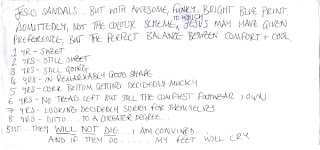 JESUS SANDALS... BUT WITH AWESOME, FUNKY, BRIGHT BLUE PRINT
ADMITTEDLY, NOT THE COLOUR SCHEME, TO WHICH JESUS MAY HAVE GIVEN
PREFERENCE, BUT THE PERFECT BALANCE BETWEEN COMFORT + COOL
1 YR - SWEET
2 YRS - STILL SWEET
3 YRS - STILL GOING
4 YRS - IN REMARKABLY GOOD SHAPE
5 YRS - CORK BOTTOM GETTING DECIDEDLY MUCKY
6 YRS - NO TREAD LEFT BUT STILL THE COMFIEST FOOTWEAR I OWN
7 YRS - LOOKING DECIDEDLY SORRY FOR THEMSELVES
8 YRS - DITTO.... TO A GREATER DEGREE...
BUT THEY WILL NOT DIE. I AM CONVINCED...
AND IF THEY DO..... MY FEET WILL CRY